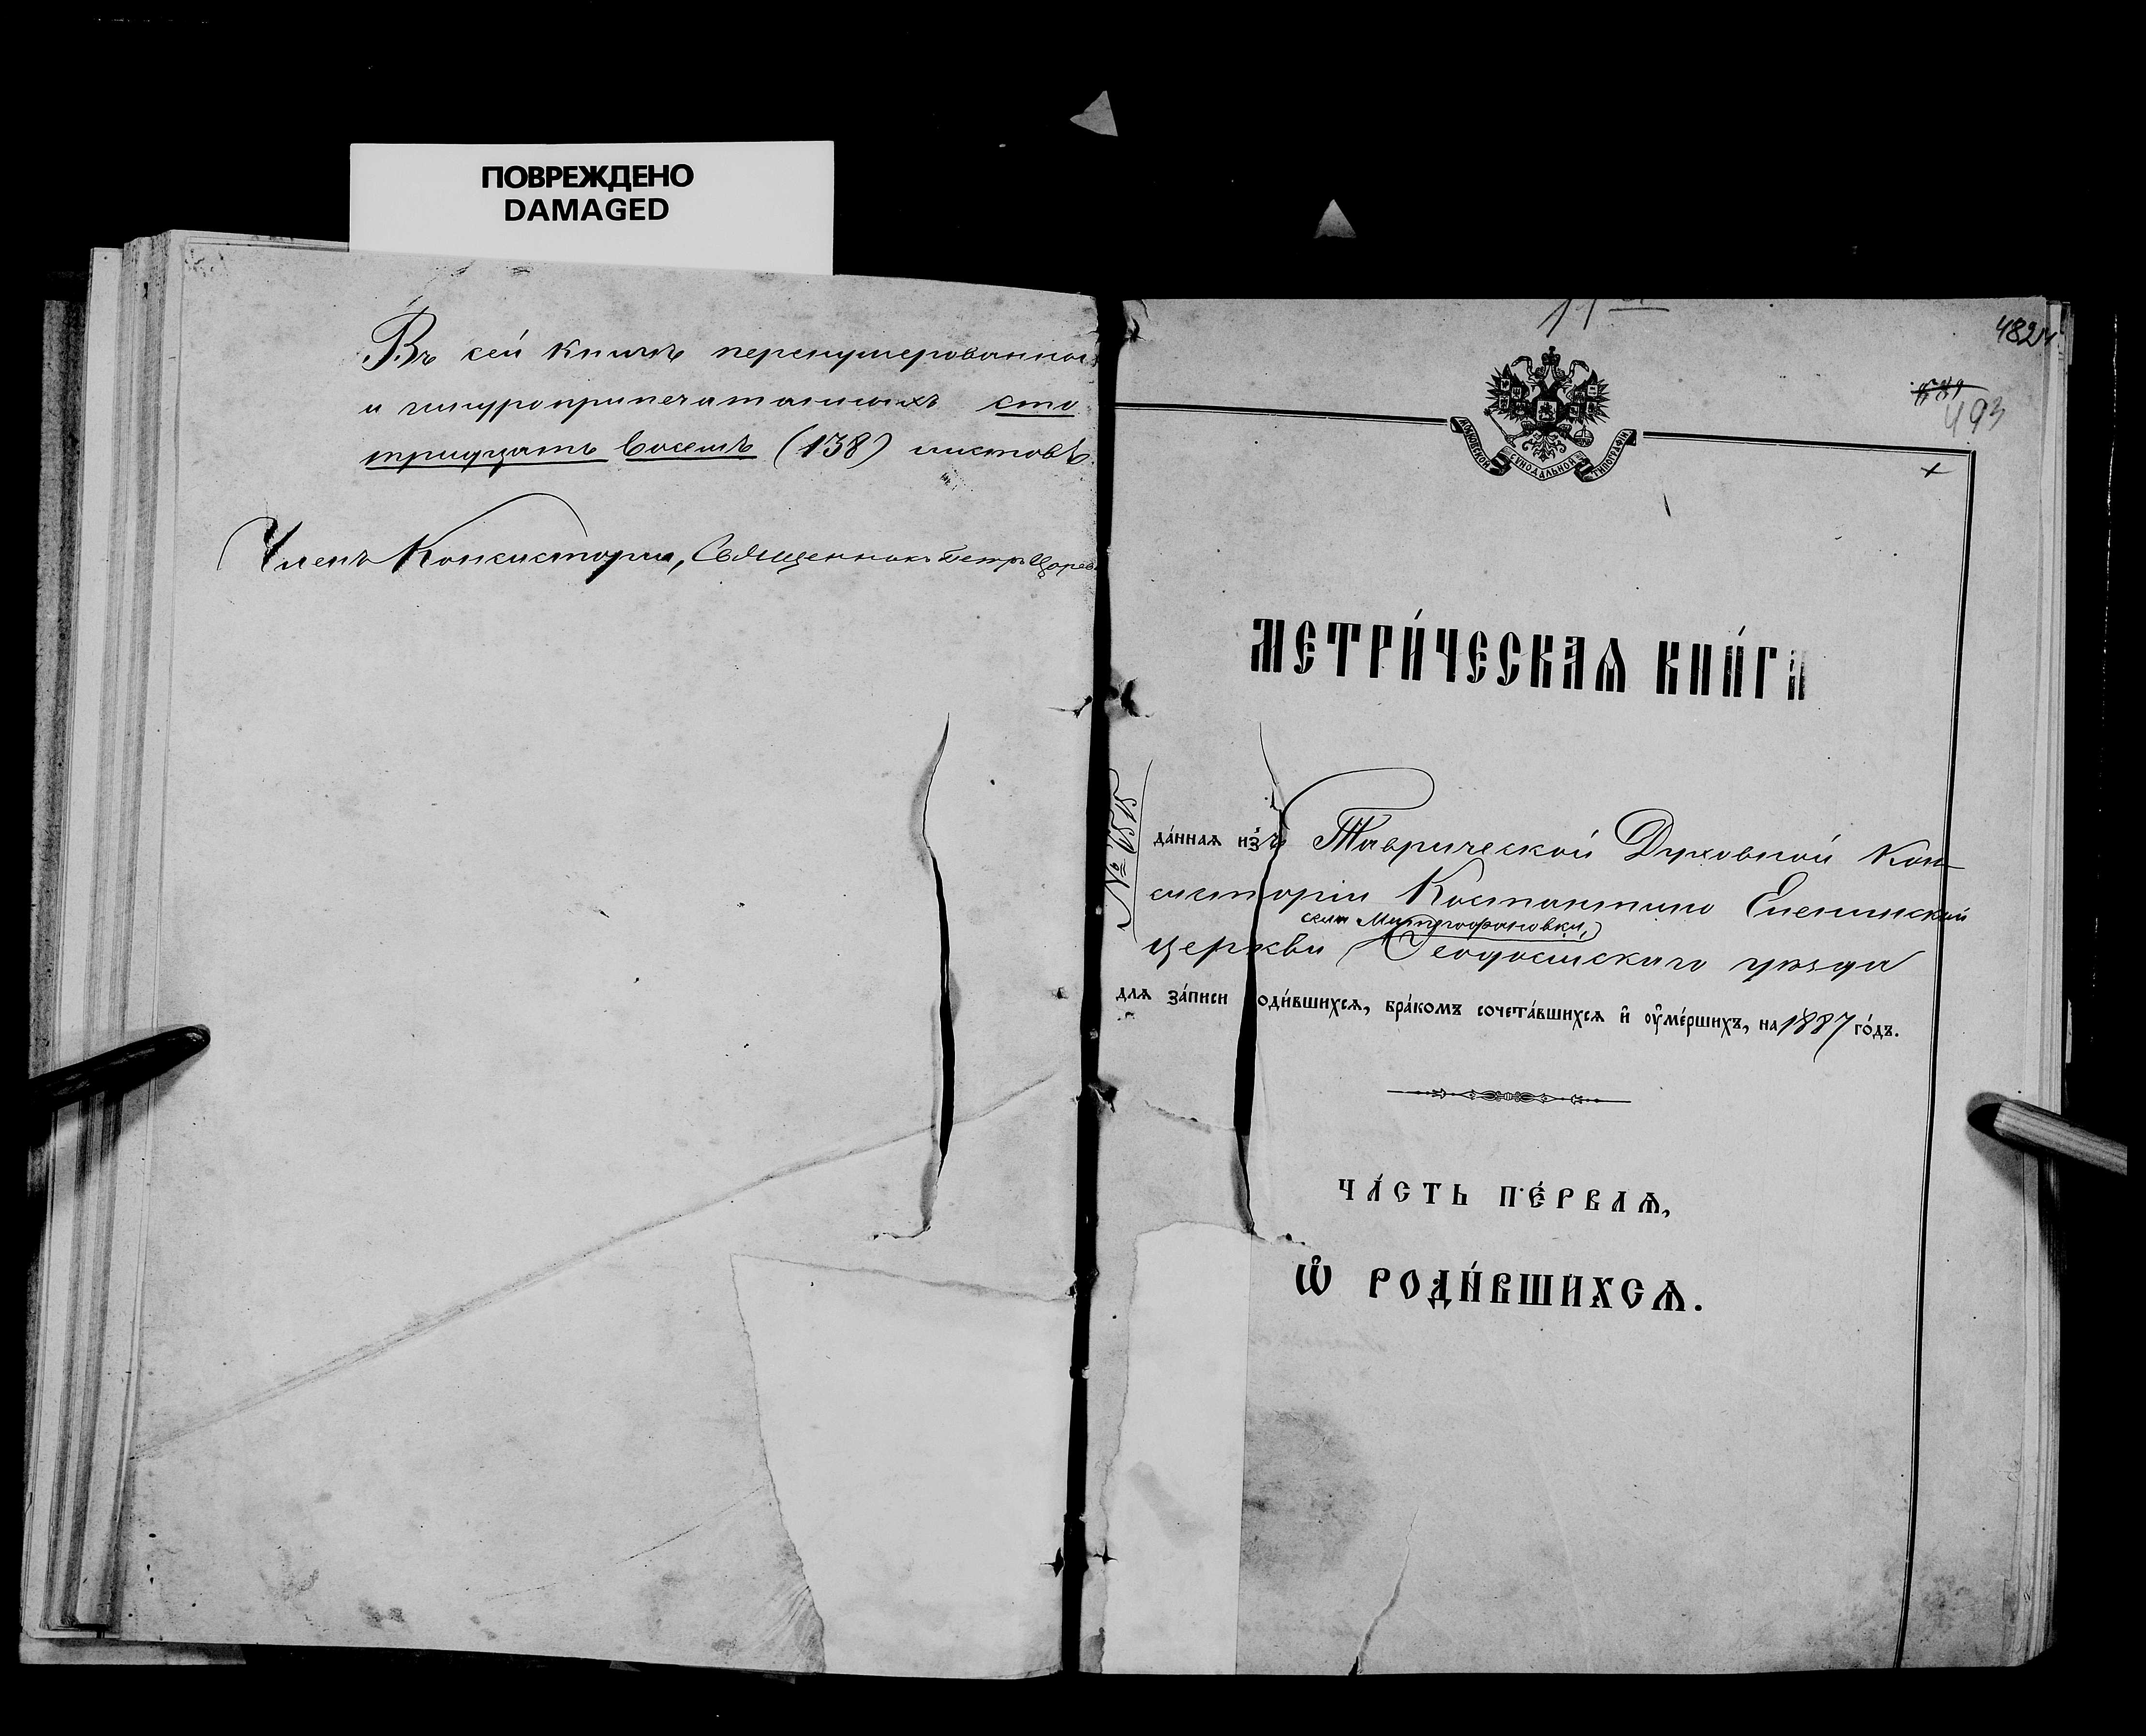 ПОВРЕЖДЕНО
DAMAGED
Въ сей книгѣ перенумерованныхъ
и шнуроприпечатанныхъ сто
тридцать восемь (138) листовъ.
Членъ Консисторіи, Священникъ Петръ
482
493
МОСКОВСКОЙ СѴНОДАЛЬНОЙ ТИПОГРАФІИ
МЕТРИ́ЧЕСКАѦ КНИ́ГА
да́ннаѧ и҆зъ Таврической Духовной Кон-
систоріи Костантино Еленинской
села Митрофановки,
церкви Ѳеодосійскаго уѣзда
длѧ за́писи роди́вшихсѧ, бра́комъ сочета́вшихсѧ и҆ оу҆ме́ршихъ, на 1887 го́дъ.
ЧА́СТЬ ПЕ́РВАѦ,
Ѽ РОДИ́ВШИХСѦ.